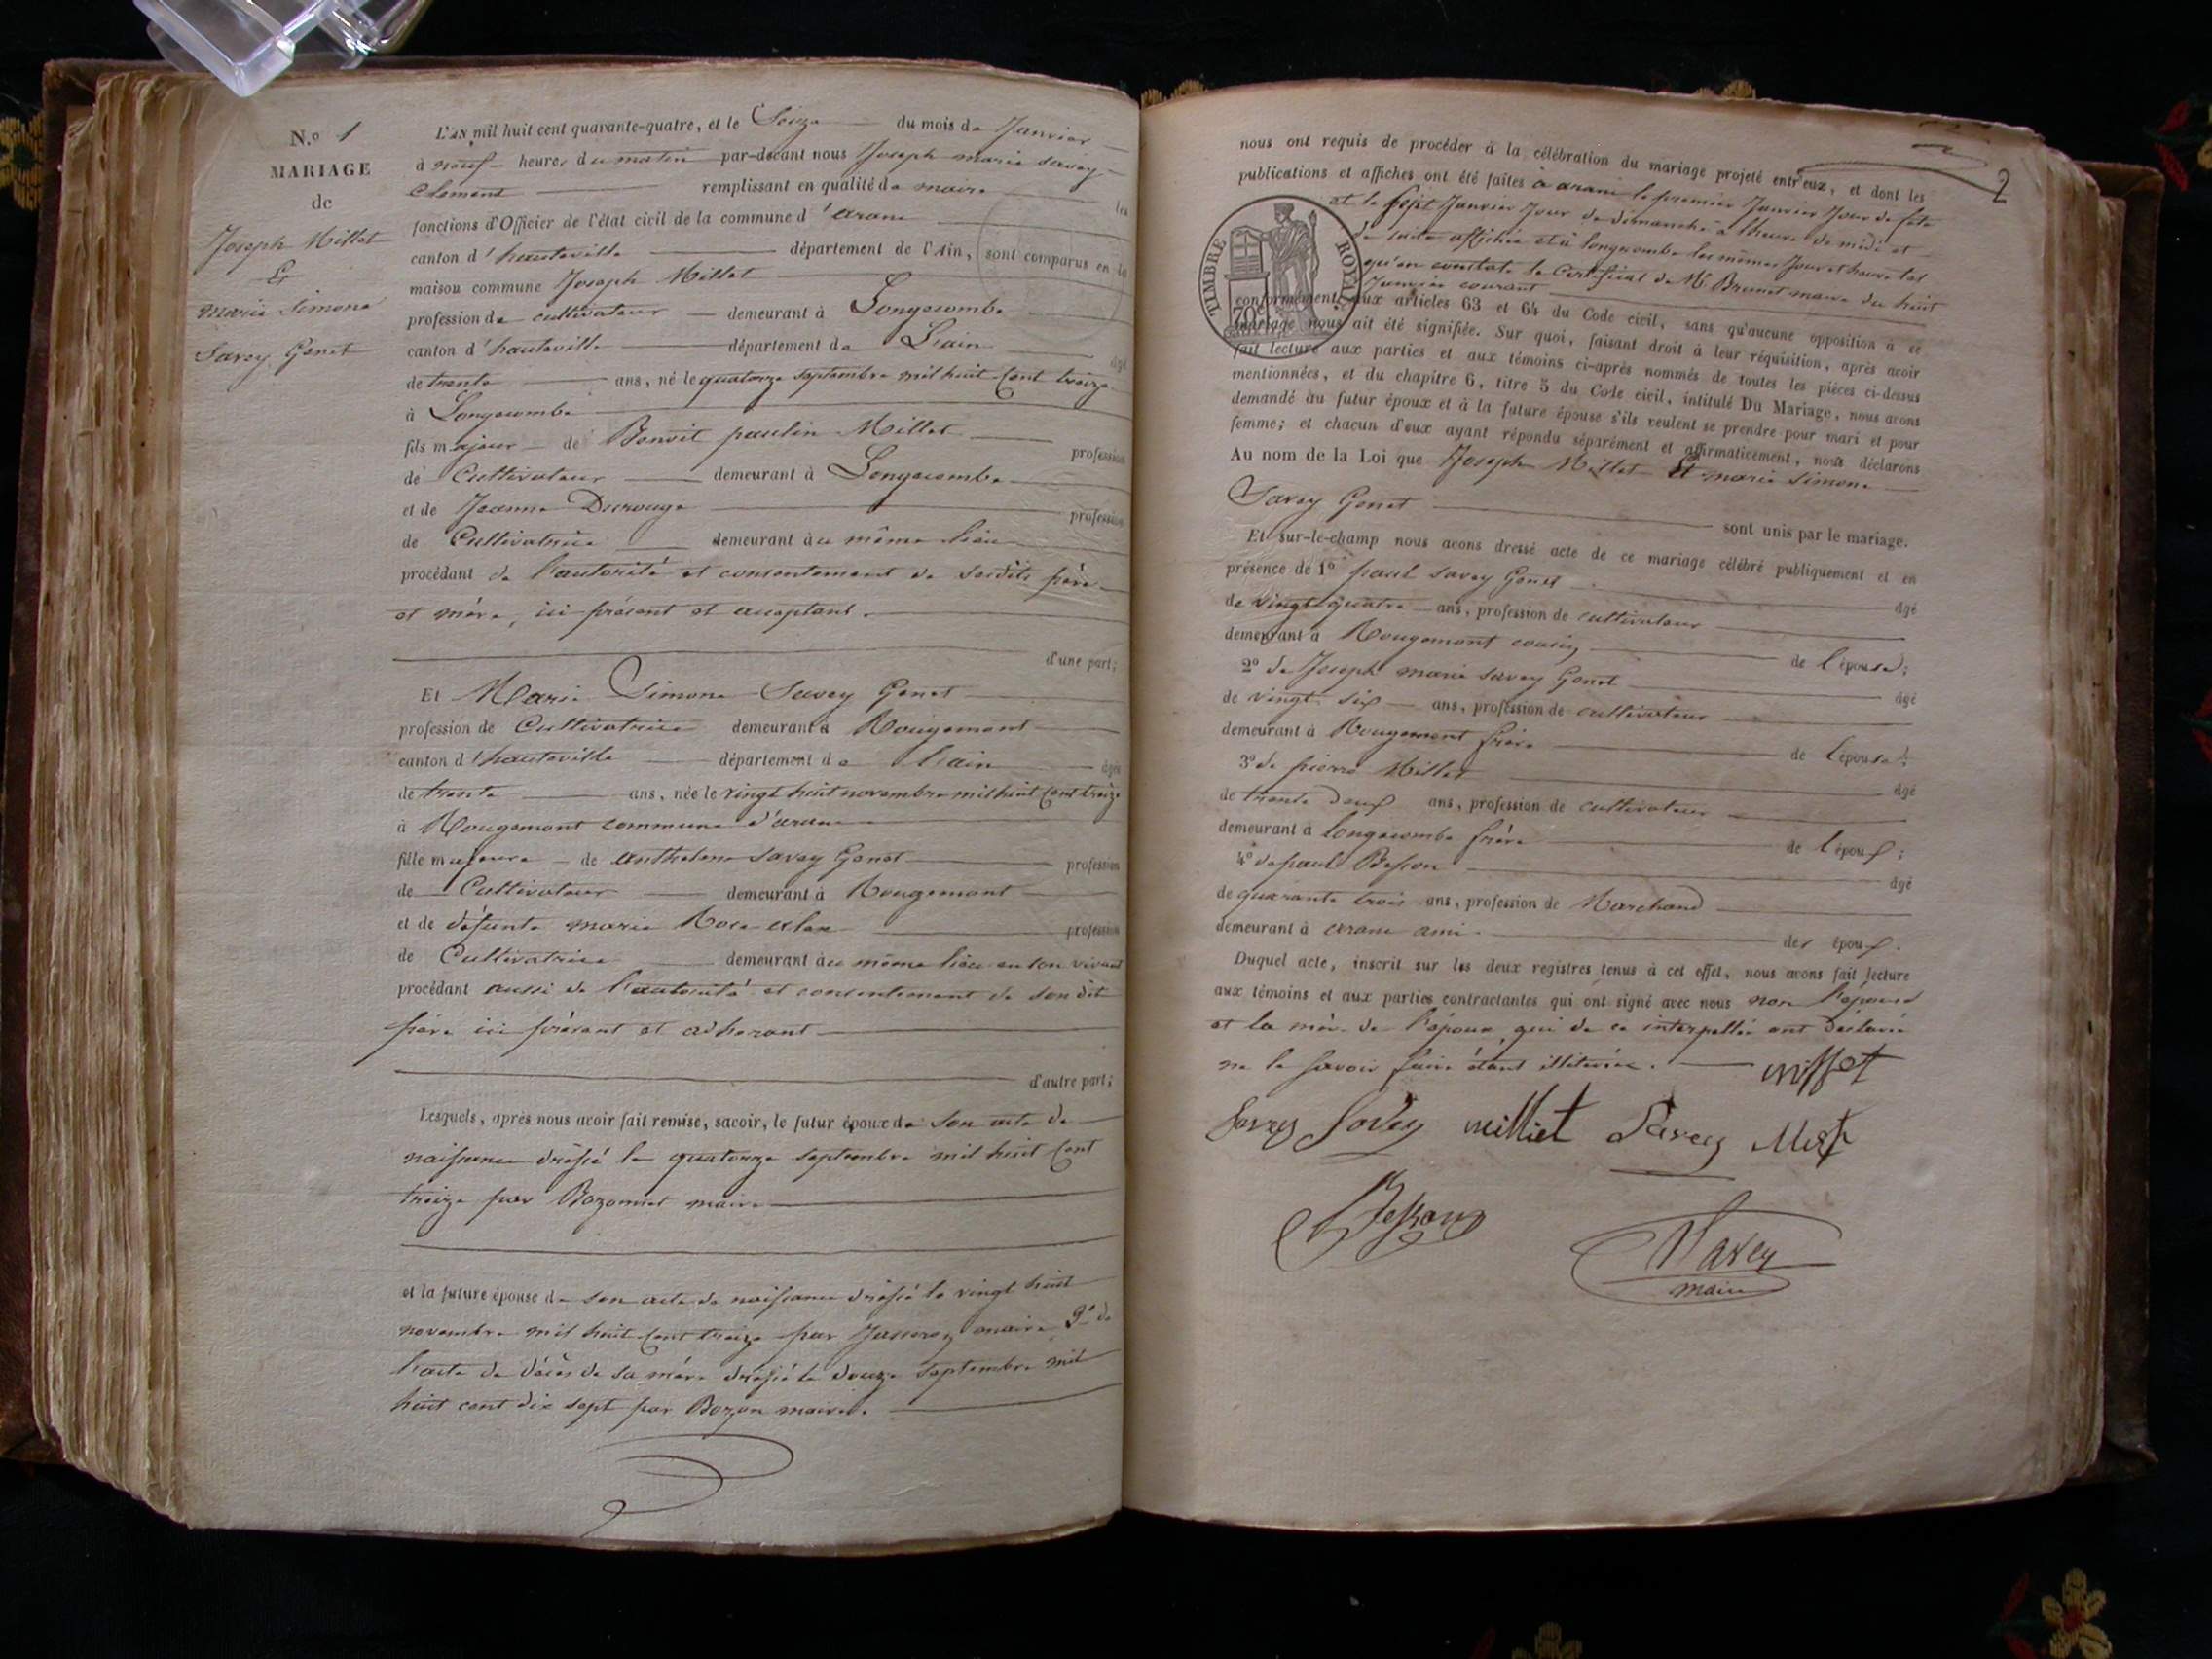 N.o 1
MARIAGE
de
Joseph Millet
Et
marie Simone
Savey Genet
L'AN mil huit cent quarante-quatre, et le Seize du mois de Janvier
à neuf heures du matin par-devant nous Joseph marie savey
Clement remplissant en qualité de maire les
fonctions d'Officier de l'état civil de la commune d'arane
canton d'hauteville département de l'Ain, sont comparus en la
maison commune Joseph Millet
profession de cultivateur demeurant à Longecombe
canton d'hauteville département de L'ain âgé
de trente ans, né le quatorze septembre mil huit Cent treize
à Longecombe
fils majeur de Benoit paulin Millet profession
de Cultivateur demeurant à Longecombe
et de Jeanne Ducrouge profession
de Cultivatrice demeurant au même lieu
procédant de l'autorité et consentement de sesdits père
et mère, ici présent et acceptant.
d'une part;
Et Marie Simone Savey Genet
profession de Cultivatrice demeurant à Rougemont
canton d'hauteville département de l'ain âgée
de trente ans, née le vingt huit novembre mil huit Cent treize
à Rougemont commune d'arane
fille majeure de anthelme Savey Genet profession
de Cultivateur demeurant à Rougemont
et de défunte marie Rose profession
de Cultivatrice demeurant au même lieu en son vivant
procédant aussi de l'autorité et consentement de son dit
père ici présent et adhérant
d'autre part;
Lesquels, après nous avoir fait remise, savoir, le futur époux de son acte de
naissance dressé le quatorze septembre mil huit Cent
treize par Bozonnet maire
et la future épouse de son acte de naissance dressé le vingt huit
novembre mil huit Cent treize par maire 2o de
l'acte de décès de sa mère dressé le douze septembre mil
huit cent dix sept par Bozon maire.
2
nous ont requis de procéder à la célébration du mariage projeté entr'eux, et dont les
publications et affiches ont été faites à arane le premier Janvier Jour de fête
et le sept Janvier Jour de dimanche à l'heure de midi et
de suite affichée et à longecombe les mêmes Jour et heure tel
qu'en constate le Certificat de Mr Brunet maire du huit
Janvier courant
TIMBRE ROYAL
70c
conformément aux articles 63 et 64 du Code civil, sans qu'aucune opposition à ce
mariage nous ait été signifiée. Sur quoi, faisant droit à leur réquisition, après avoir
fait lecture aux parties et aux témoins ci-après nommés de toutes les pièces ci-dessus
mentionnées, et du chapitre 6, titre 5 du Code civil, intitulé Du Mariage, nous avons
demandé au futur époux et à la future épouse s'ils veulent se prendre pour mari et pour
femme; et chacun d'eux ayant répondu séparément et affirmativement, nous déclarons
Au nom de la Loi que Joseph Millet Et marie Simone
Savey Genet sont unis par le mariage.
Et sur-le-champ nous avons dressé acte de ce mariage célébré publiquement et en
présence de 1o paul savey Genet âgé
de vingt quatre ans, profession de cultivateur
demeurant à Rougemont cousin de l'épouse;
2o de Joseph marie savey Genet âgé
de vingt six ans, profession de cultivateur
demeurant à Rougemont frère de l'épouse;
3o de pierre Millet âgé
de trente deux ans, profession de cultivateur
demeurant à longecombe frère de l'époux;
4o de paul Besson âgé
de quarante trois ans, profession de Marchand
demeurant à arane ami des époux.
Duquel acte, inscrit sur les deux registres tenus à cet effet, nous avons fait lecture
aux témoins et aux parties contractantes qui ont signé avec nous non l'épouse
et la mère de l'époux, qui de ce interpellée ont déclaré
ne le savoir faire étant illiterée. millet
Savey Savey milliet Savey
Besson
Savey
maire